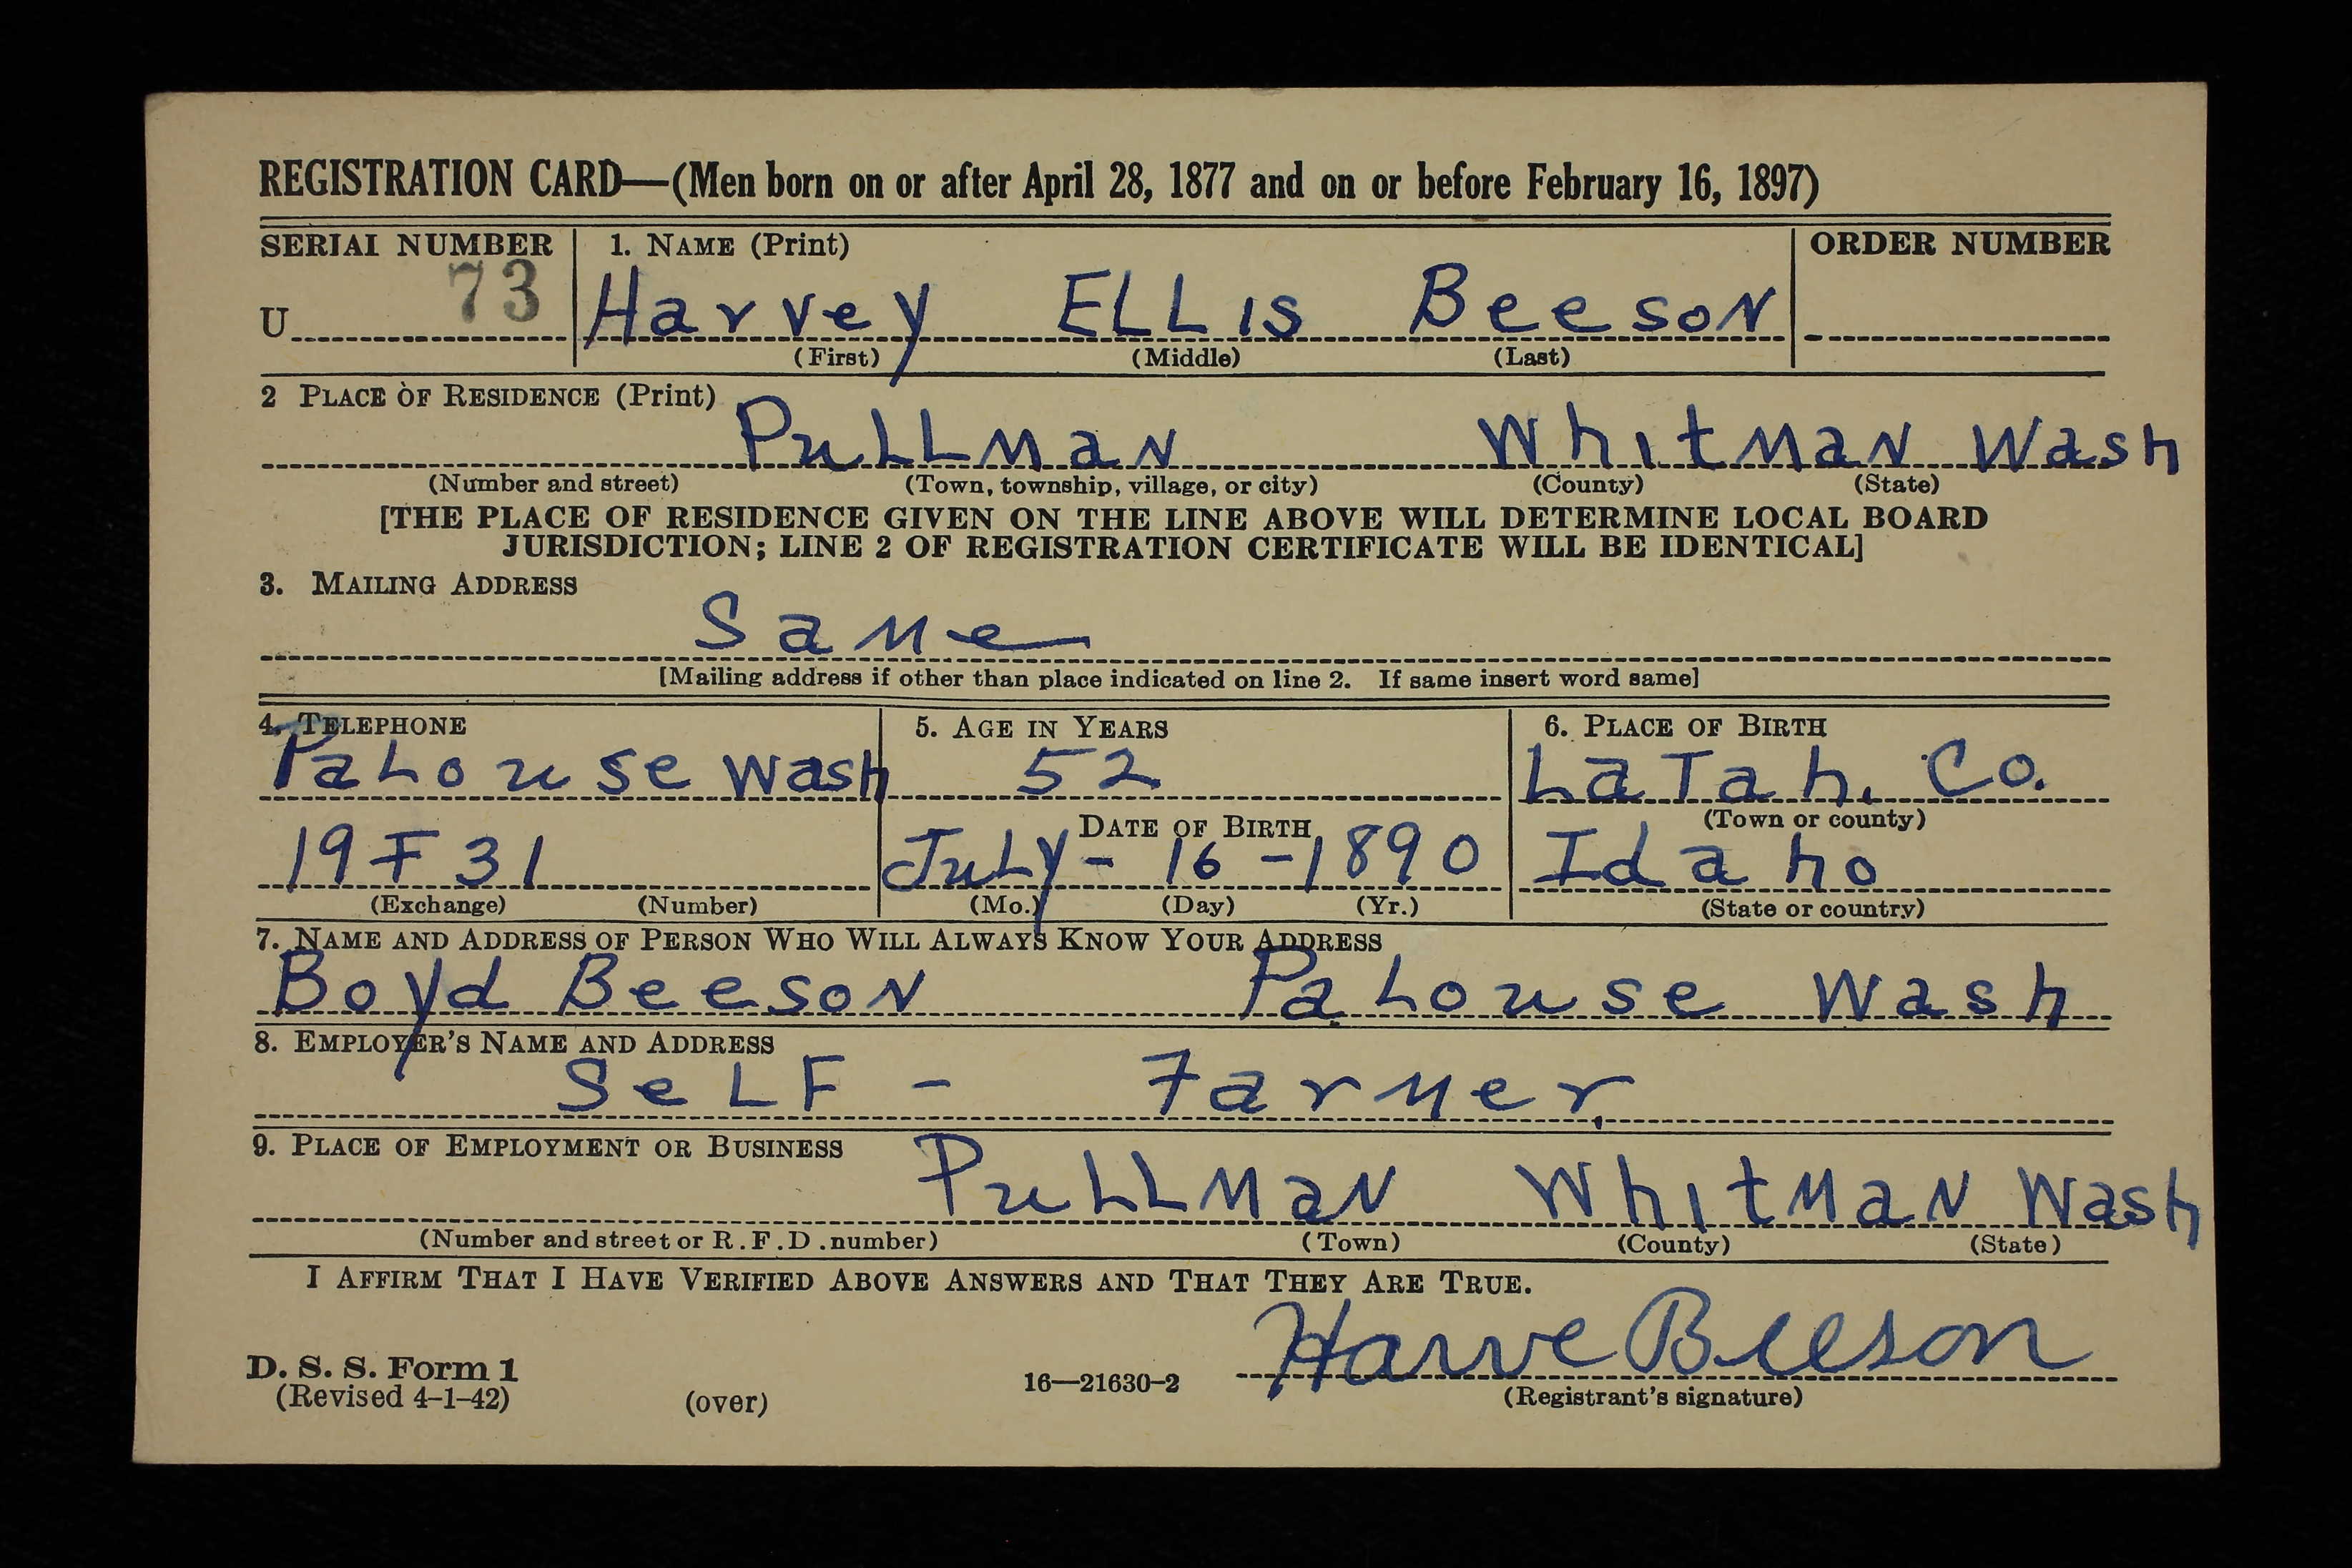 REGISTRATION CARD—(Men born on or after April 28, 1877 and on or before February 16, 1897)
SERIAL NUMBER 1. NAME (Print) ORDER NUMBER
U 73 Harvey ELLis BeesoN
(First) (Middle) (Last)
2 PLACE OF RESIDENCE (Print)
PuLLMaN WhitMaN Wash
(Number and street) (Town, township, village, or city) (County) (State)
[THE PLACE OF RESIDENCE GIVEN ON THE LINE ABOVE WILL DETERMINE LOCAL BOARD
JURISDICTION; LINE 2 OF REGISTRATION CERTIFICATE WILL BE IDENTICAL]
3. MAILING ADDRESS
SaMe
[Mailing address if other than place indicated on line 2. If same insert word same]
4. TELEPHONE 5. AGE IN YEARS 6. PLACE OF BIRTH
PaLouse Wash 52 LaTah. Co.
DATE OF BIRTH (Town or county)
19 F 31 JuLy - 16 - 1890 Idaho
(Exchange) (Number) (Mo.) (Day) (Yr.) (State or country)
7. NAME AND ADDRESS OF PERSON WHO WILL ALWAYS KNOW YOUR ADDRESS
Boyd BeesoN PaLouse Wash
8. EMPLOYER'S NAME AND ADDRESS
SeLF - FarMer.
9. PLACE OF EMPLOYMENT OR BUSINESS
PuLLMaN WhitMaN Wash
(Number and street or R.F.D. number) (Town) (County) (State)
I AFFIRM THAT I HAVE VERIFIED ABOVE ANSWERS AND THAT THEY ARE TRUE.
Harve Beeson
D. S. S. Form 1
(Revised 4-1-42) (over) 16—21630-2 (Registrant's signature)